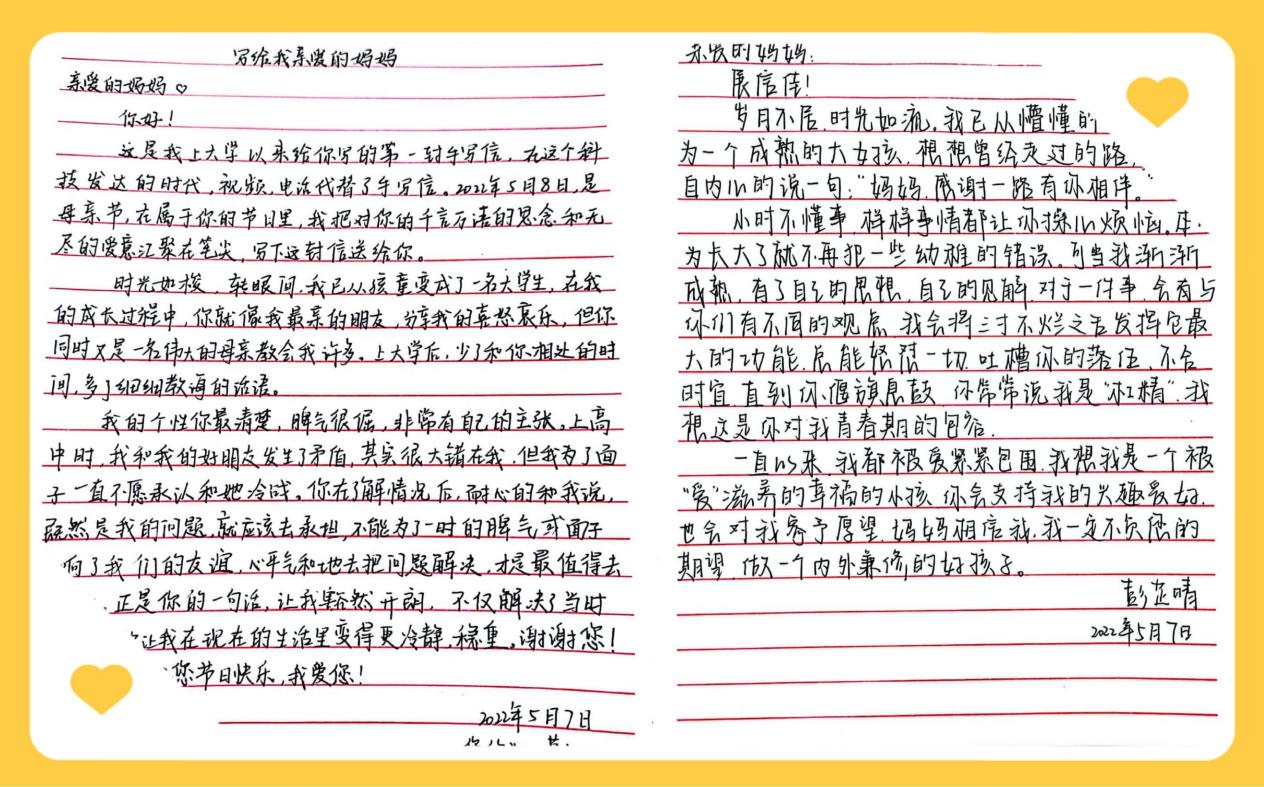 写给我亲爱的妈妈
亲爱的妈妈♡
你好！
这是我上大学以来给你写的第一封手写信，在这个科
技发达的时代，视频，电话代替了手写信。2022年5月8日，是
母亲节，在属于你的节日里，我把对你的千言万语的思念和无
尽的爱意汇聚在笔尖，写下这封信送给你。
时光如梭，转眼间，我已从孩童变成了一名大学生，在我
的成长过程中，你就像我最亲的朋友，分享我的喜怒哀乐，但你
同时又是一名伟大的母亲教会我许多。上大学后，少了和你相处的时
间，多了细细教诲的话语。
我的个性你最清楚，脾气很倔，非常有自己的主张。上高
中时，我和我的好朋友发生了矛盾，其实很大错在我，但我为了面
子一直不愿承认和她冷战。你在了解情况后，耐心的和我说，
既然是我的问题，就应该去承担，不能为了一时的脾气或面子
响了我们的友谊，心平气和地去把问题解决，才是最值得去
正是你的一句话，让我豁然开朗，不仅解决了当时
让我在现在的生活里变得更冷静，稳重。谢谢您！
您节日快乐，我爱您！
2022年5月7日
的妈妈：
展信佳！
岁月不居，时光如流，我已从懵懂的
为一个成熟的大女孩，想想曾经走过的路，
自内心的说一句：“妈妈，感谢一路有你相伴。”
小时不懂事，样样事情都让你操心烦恼。
为长大了就不再犯一些幼稚的错误。可当我渐渐
成熟，有了自己的思想，自己的见解，对于一件事，会有与
你们有不同的观点，我会将三寸不烂之舌发挥它最
大的功能，总能轻怼一切，吐槽你的落伍，不合
时宜，直到你偃旗息鼓，你常常说我是“杠精”，我
想这是你对我青春期的包容。
一直以来，我都被爱紧紧包围，我想我是一个被
“爱”滋养的幸福的小孩，你会支持我的兴趣爱好，
也会对我寄予厚望，妈妈相信我，我一定不负您的
期望，做一个内外兼修的好孩子。
彭芷晴
2022年5月7日